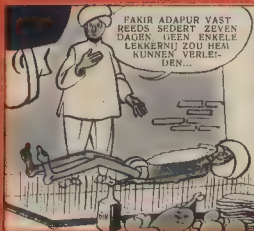 FAKIR ADAPUR VAST
REEDS SEDERT ZEVEN
DAGEN. GEEN ENKELE
LEKKERNIJ ZOU HEM
KUNNEN VERLEI-
DEN...
GIN